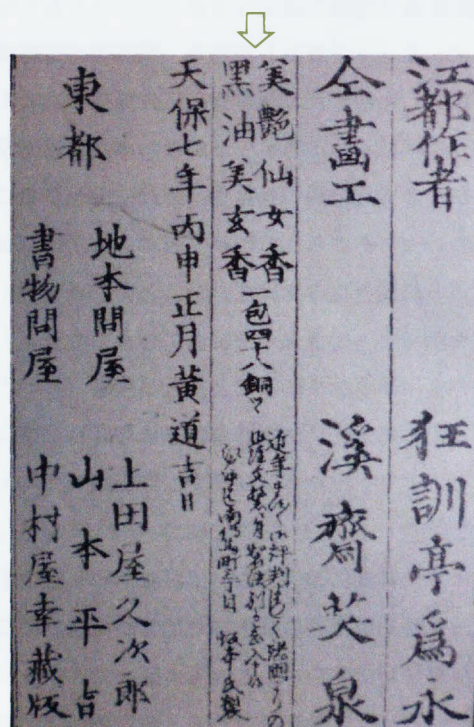 江都作者 狂訓亭爲永
仝畫工 溪齋英泉
美艷仙女香
黑油美玄香
一包四十八銅ツヽ
天保七年丙申正月黄道吉日
東都
地本問屋
書物問屋
上田屋久次郎
山本平吉
中村屋幸藏版